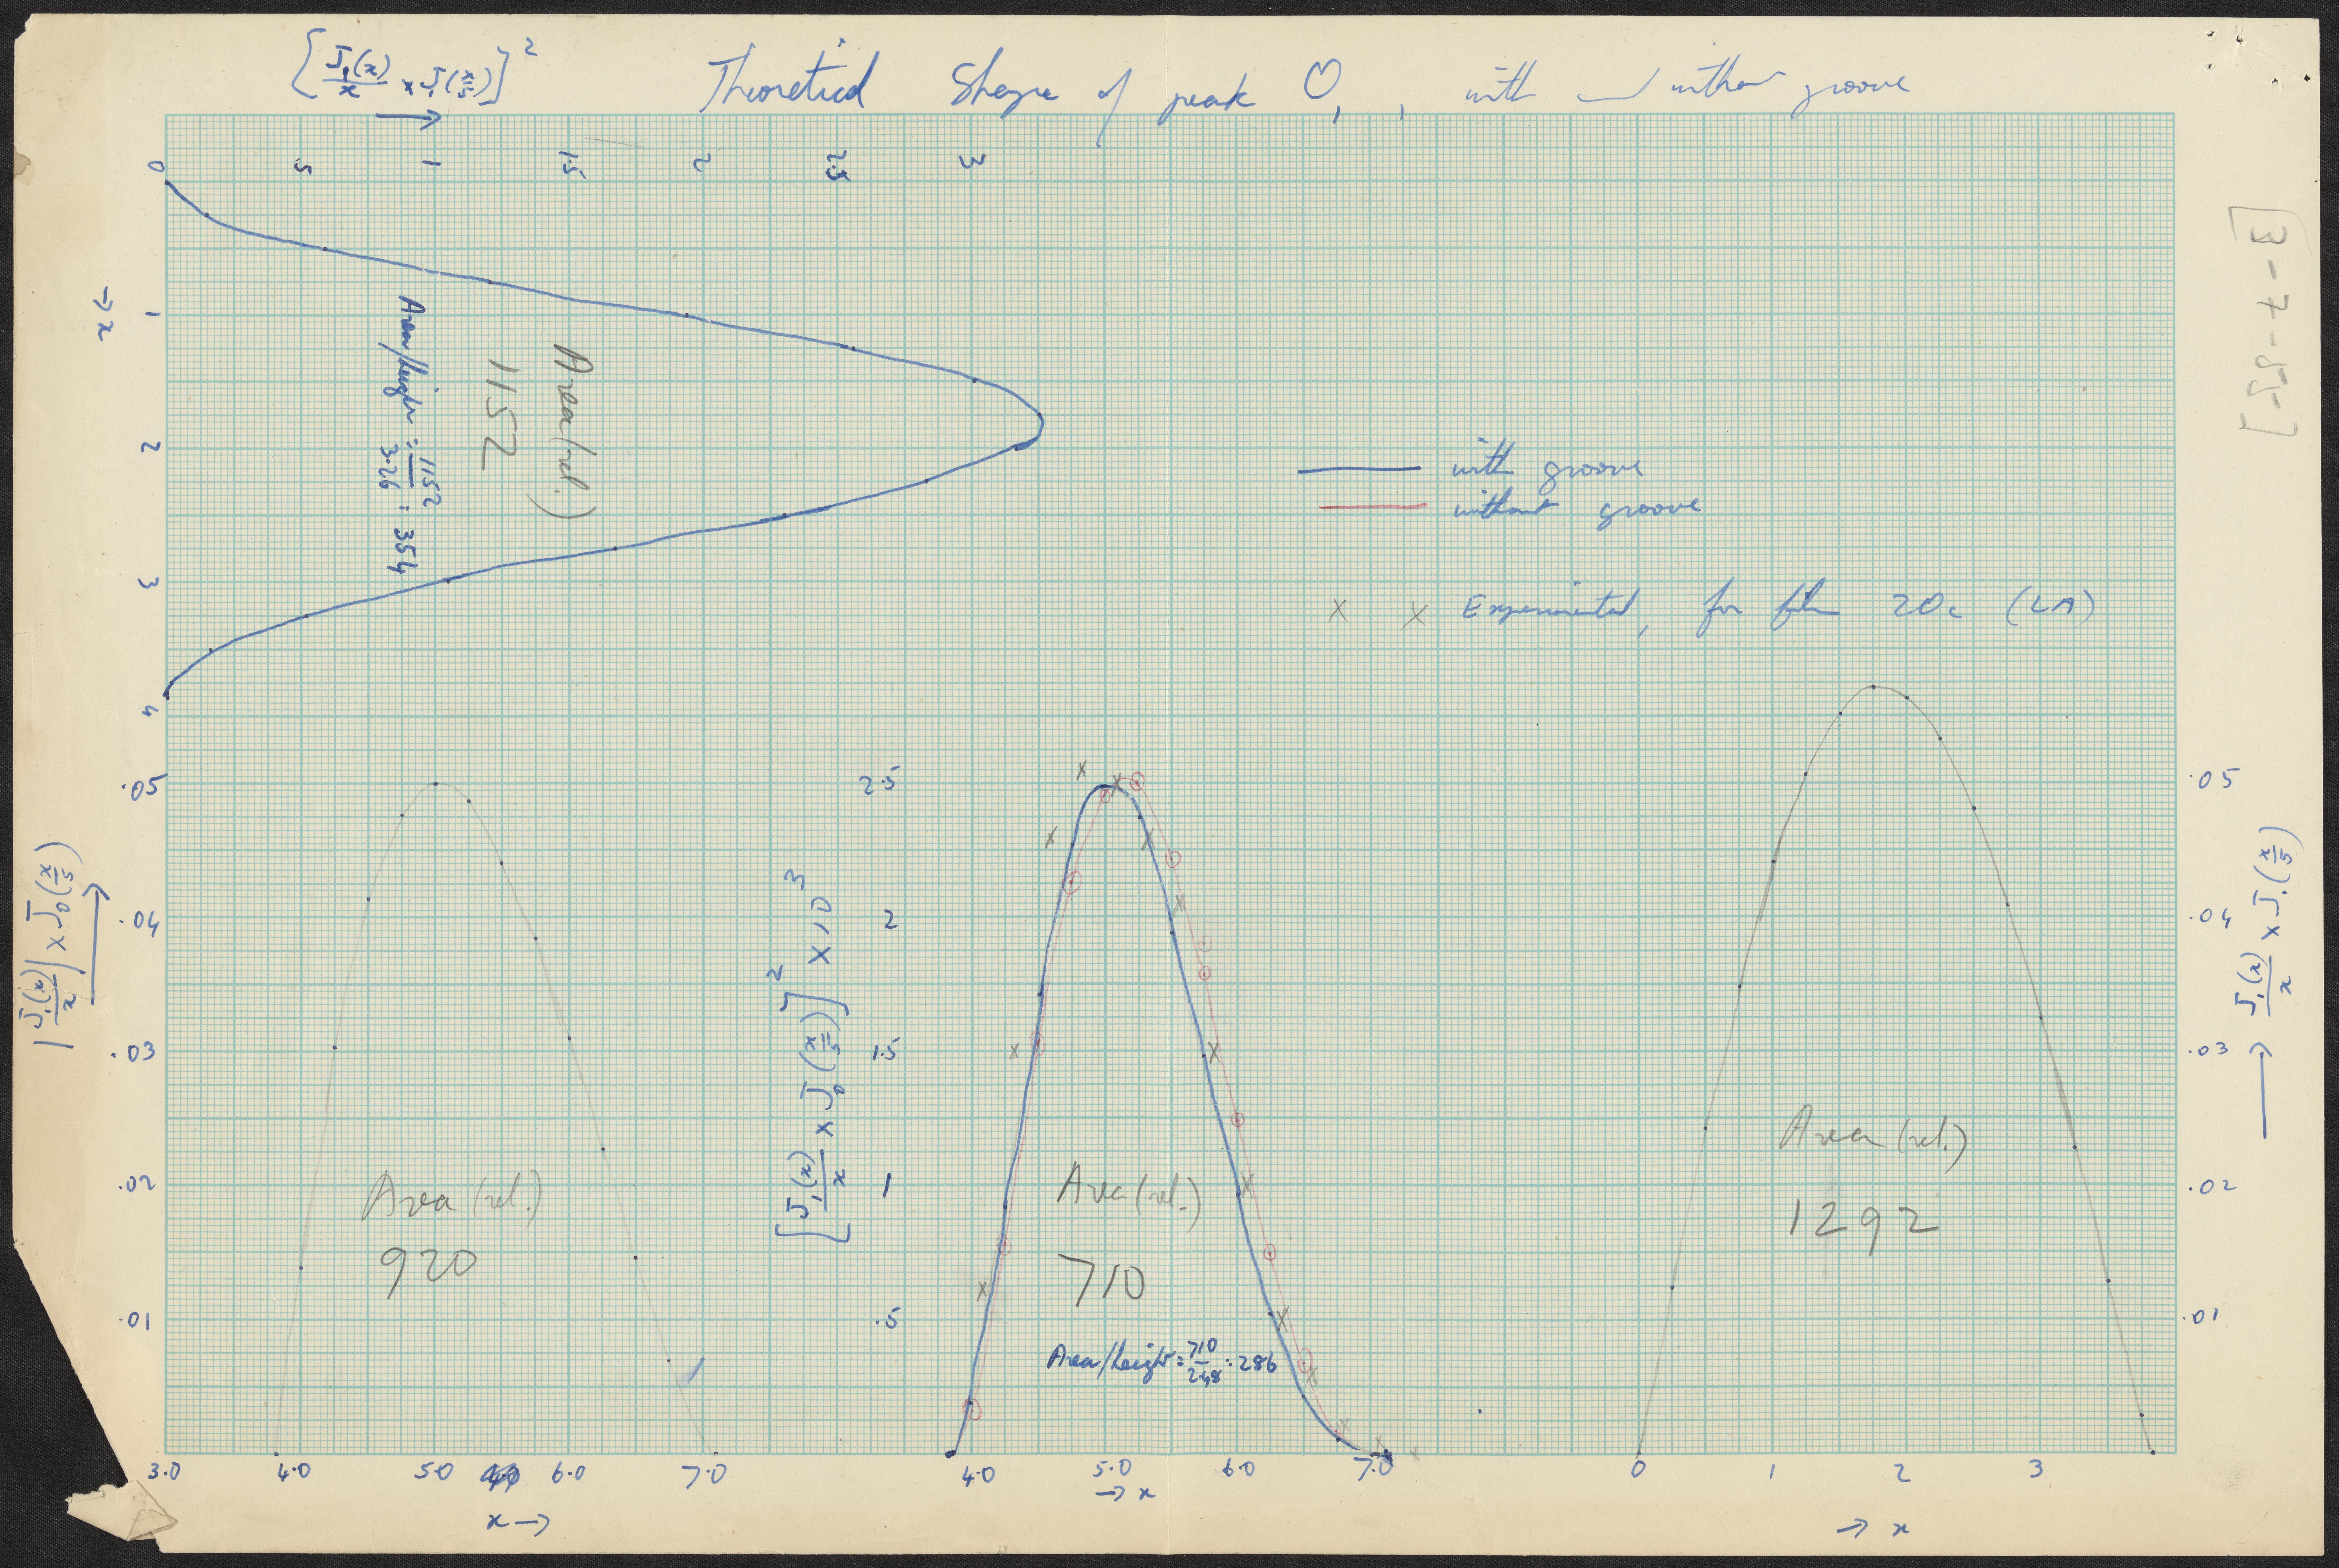 [J₁(x)/x × J₁(x/5)]²
→
Theoretical Shape of peak O, , with and without groove
0 .5 1 1.5 2 2.5 3
→ x
1
2
3
4
Area (rel.)
1152
Area/height = 1152/3.26 = 354
[3-7-55]
with groove
without groove
x x Experimental, for film 20c (LA)
|J₁(x)/x| × J₀(x/5)
.05
.04
.03
.02
.01
Area (rel.)
920
3.0 4.0 5.0 6.0 7.0
x →
[J₁(x)/x × J₀(x/5)]² × 10³
2.5
2
1.5
1
.5
Area (rel.)
710
Area/height = 710/2.48 = 286
4.0 5.0 6.0 7.0
→ x
→ J₁(x)/x × J₁(x/5)
.05
.04
.03
.02
.01
Area (rel.)
1292
0 1 2 3
→ x